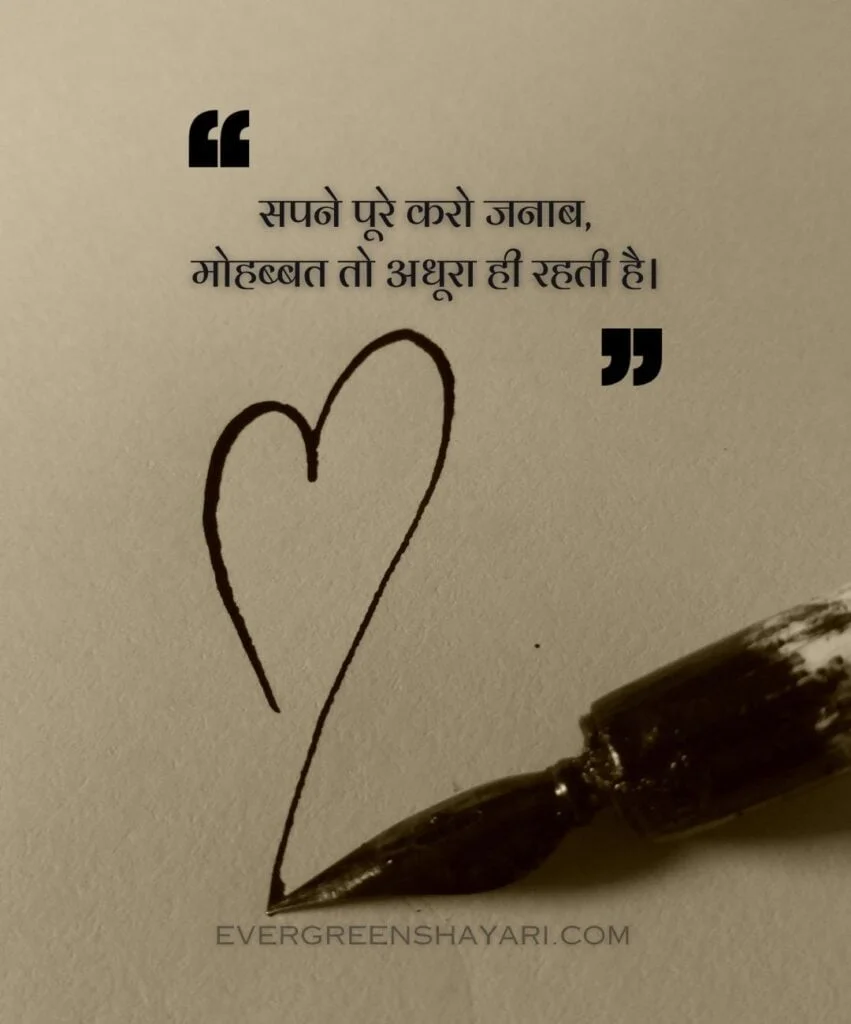 ❝
सपने पूरे करो जनाब,
मोहब्बत तो अधूरा ही रहती है।
❞
EVERGREENSHAYARI.COM